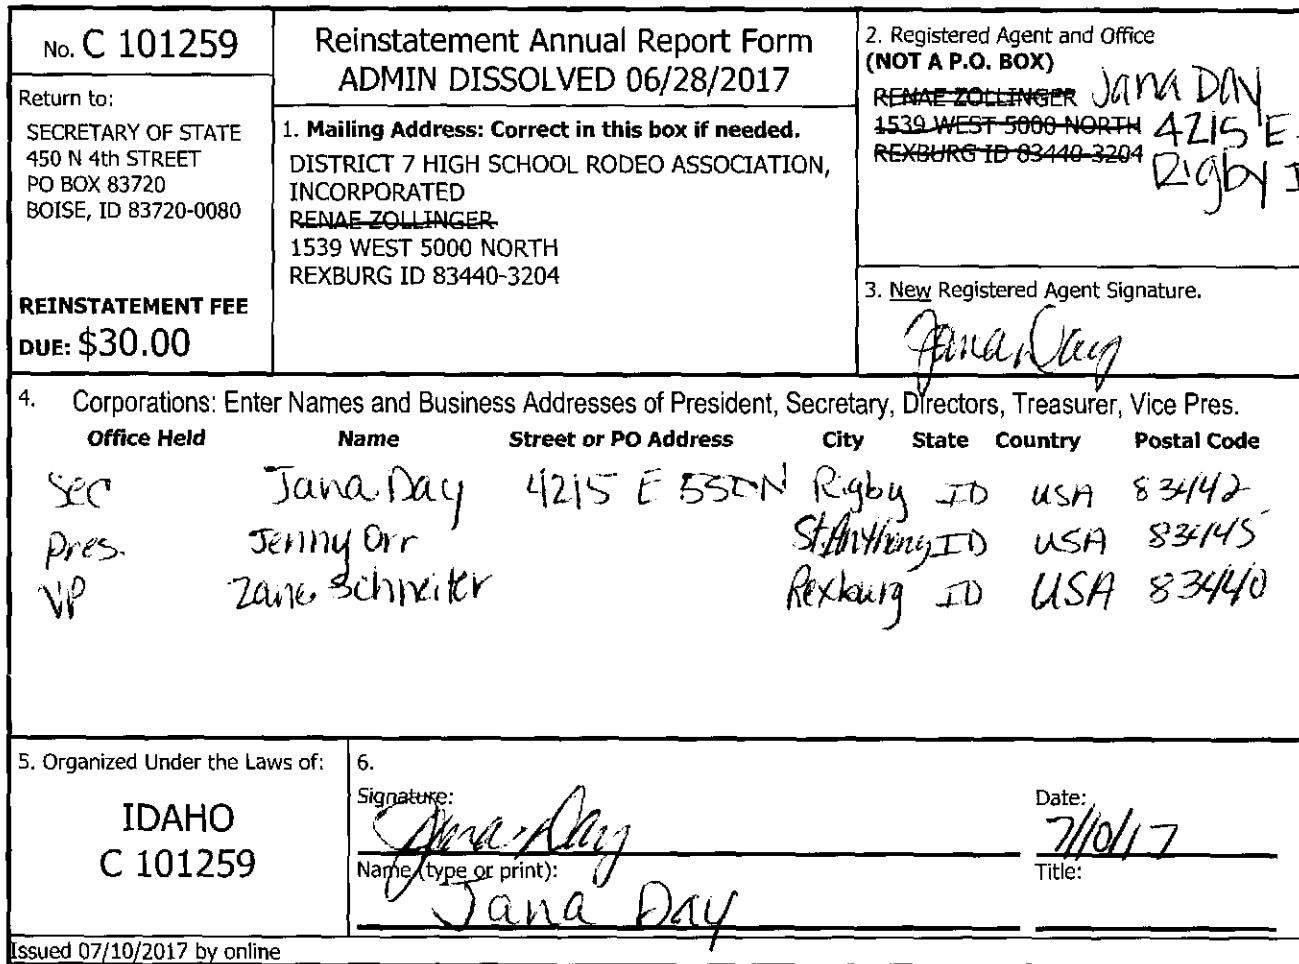 No. C 101259
Return to:
SECRETARY OF STATE
450 N 4th STREET
PO BOX 83720
BOISE, ID 83720-0080
REINSTATEMENT FEE
DUE: $30.00
Reinstatement Annual Report Form
ADMIN DISSOLVED 06/28/2017
1. Mailing Address: Correct in this box if needed.
DISTRICT 7 HIGH SCHOOL RODEO ASSOCIATION,
INCORPORATED
RENAE ZOLLINGER
1539 WEST 5000 NORTH
REXBURG ID 83440-3204
2. Registered Agent and Office
(NOT A P.O. BOX)
RENAE ZOLLINGER Jana Day
1539 WEST 5000 NORTH 4215 E
REXBURG ID 83440-3204 Rigby I
3. New Registered Agent Signature.
Jana Day
4. Corporations: Enter Names and Business Addresses of President, Secretary, Directors, Treasurer, Vice Pres.
Office Held Name Street or PO Address City State Country Postal Code
Sec Jana Day 4215 E 550 N Rigby ID USA 83442
Pres. Jenny Orr St. Anthony ID USA 83445
VP Zane Schneiter Rexburg ID USA 83440
5. Organized Under the Laws of:
IDAHO
C 101259
6.
Signature: Jana Day
Date: 7/10/17
Name (type or print): Jana Day
Title:
Issued 07/10/2017 by online